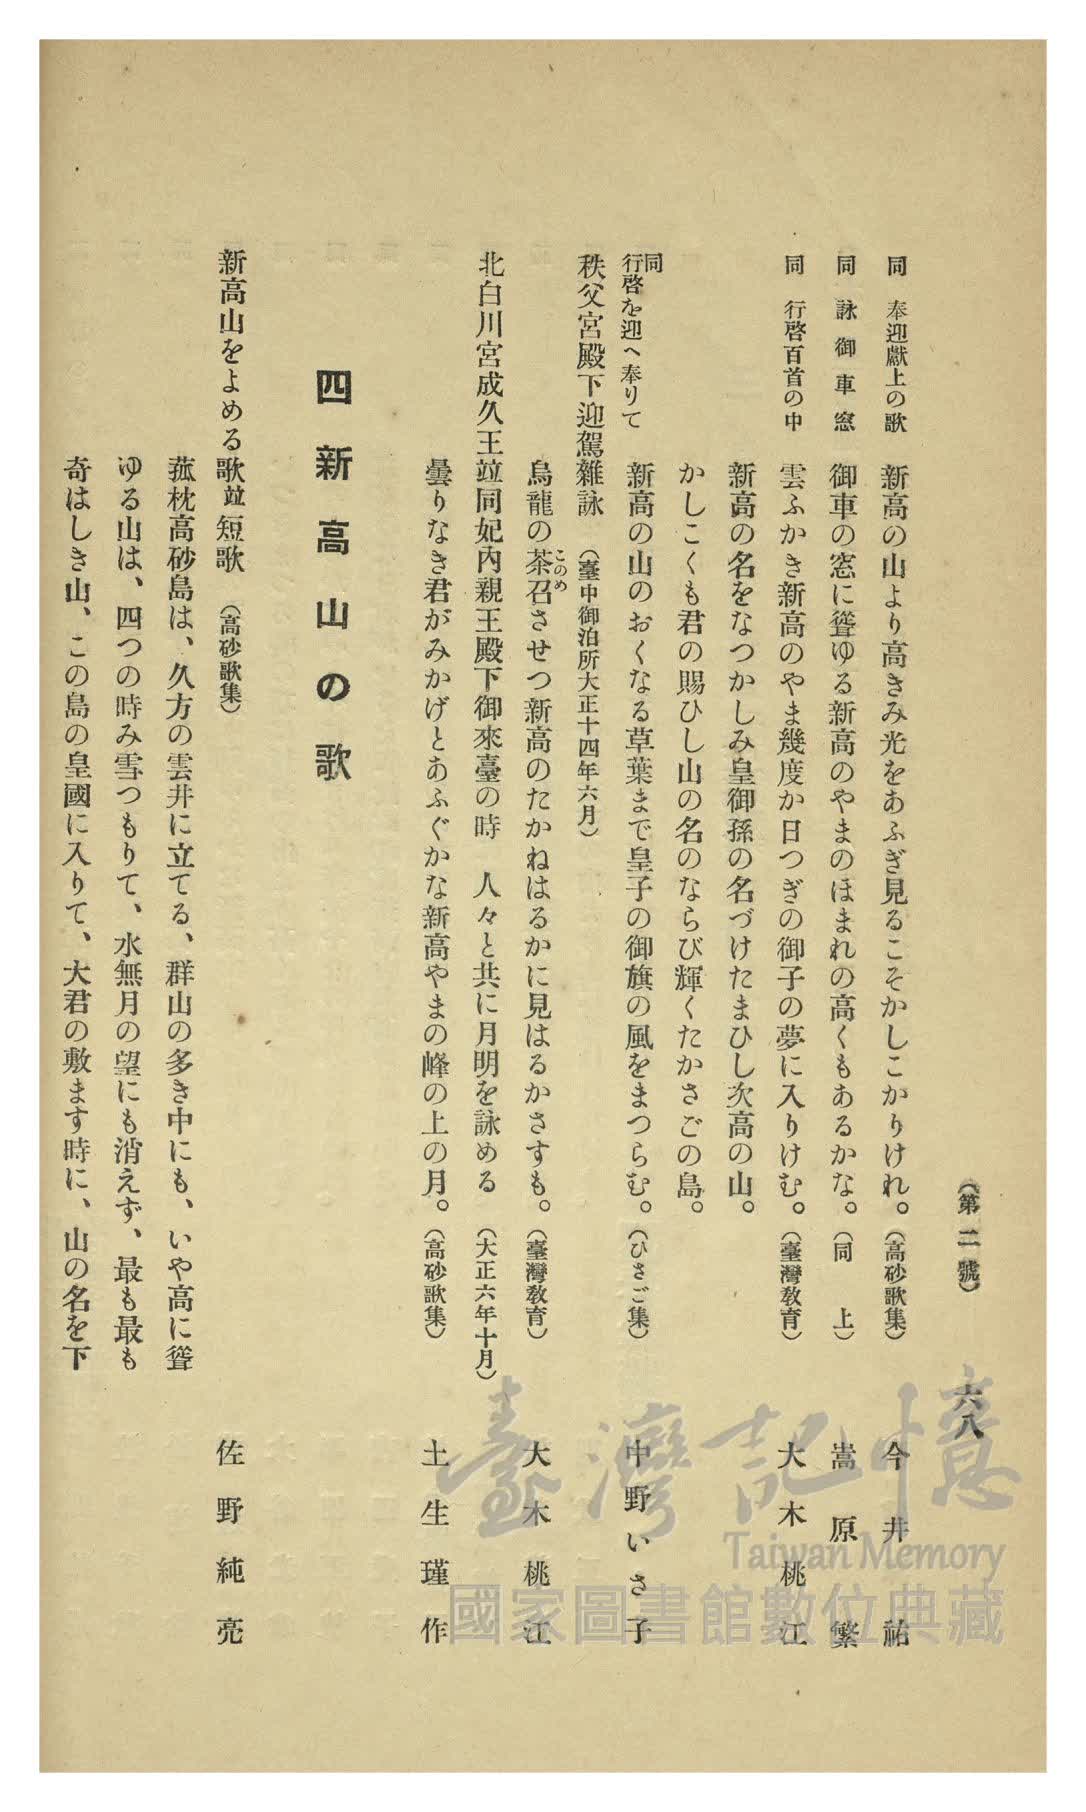 (第二號) 六八
同 奉迎獻上の歌 新高の山より高きみ光をあふぎ見るこそかしこかりけれ。(高砂歌集) 今井祐
同 詠御車窓 御車の窓に聳ゆる新高のやまのほまれの高くもあるかな。(同上) 嵩原繁
同 行啓百首の中 雲ふかき新高のやま幾度か日つぎの御子の夢に入りけむ。(臺灣敎育) 大木桃江
新高の名をなつかしみ皇御孫の名づけたまひし次高の山。
かしこくも君の賜ひし山の名のならび輝くたかさごの島。
同 行啓を迎へ奉りて 新高の山のおくなる草葉まで皇子の御旗の風をまつらむ。(ひさご集) 中野いさ子
秩父宮殿下迎駕雜詠 (臺中御泊所大正十四年六月)
烏龍の茶召させつ新高のたかねはるかに見はるかさすも。(臺灣敎育) 大木桃江
このめ
北白川宮成久王竝同妃內親王殿下御來臺の時 人々と共に月明を詠める (大正六年十月)
曇りなき君がみかげとあふぐかな新高やまの峰の上の月。(高砂歌集) 土生瑾作
四 新高山の歌
新高山をよめる歌竝短歌 (高砂歌集) 佐野純亮
菰枕高砂島は、久方の雲井に立てる、群山の多き中にも、いや高に聳
ゆる山は、四つの時み雪つもりて、水無月の望にも消えず、最も最も
奇はしき山、この島の皇國に入りて、大君の敷ます時に、山の名を下
臺灣記憶
Taiwan Memory
國家圖書館數位典藏